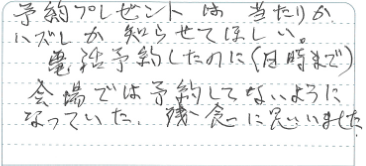 予約プレゼントは 当たりか
ハズレか 知らせてほしい。
電話予約したのに(日時まで)
会場では予約してないように
なっていた。残念に思いました